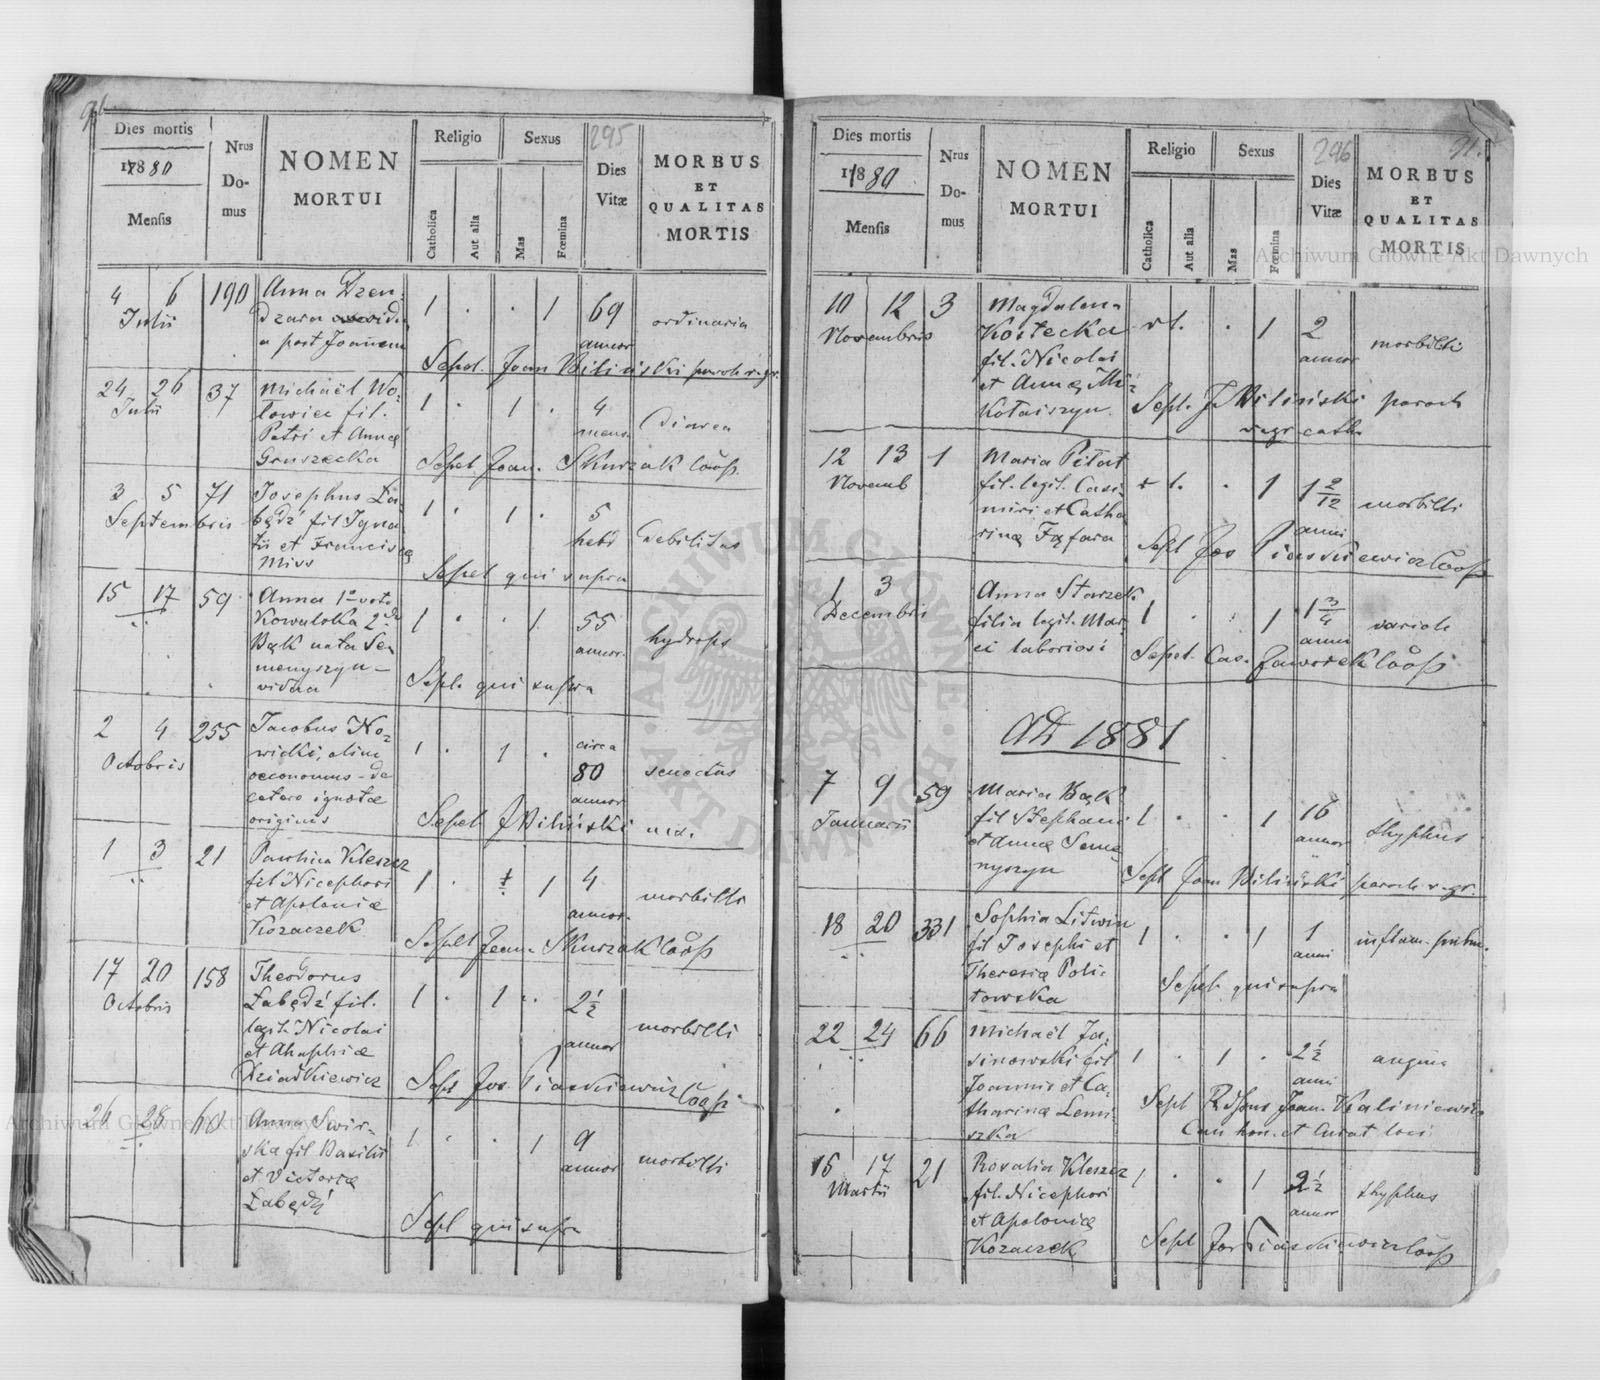 96
295
Dies mortis
1880
Mensis
Nrus
Do-
mus
NOMEN
MORTUI
Religio
Catholica
Aut alia
Sexus
Mas
Fœmina
Dies
Vitæ
MORBUS
ET
QUALITAS
MORTIS
4 6 190 Anna Dzen
Julii
dzara vidu
a post Joannem
1 . . 1 69
annor
ordinaria
Sepel. Joan Biliński paroch r. gr.
24 26 37 Michaël Wo-
Julii
łowiec fil.
Petri et Annæ
Gruszecka
1 . 1 . 4
mens.
Diarea
Sepel Joan. Skurzak Coop.
3 5 71 Josephus Ła-
Septembris
będź fil Igna
tii et Franciscæ
Miss
1 . 1 . 5
hebd
debilitas
Sepel qui supra
15 17 59 Anna 1o voto
Kowalska 2do
Bąk nata Se
menyszyn -
vidua
1 . . 1 55
annor.
hydrops
Sepl. qui supra
2 4 255 Jacobus No-
Octobris
wicki, olim
oeconomus - de
cetero ignotæ
originis
1 . 1 . circa
80
annor
senectus
Sepel J Biliński
1 3 21 Paulina Kleszcz
fil Nicephori
et Apoloniæ
Kozaczek
1 . 1 4
annor.
morbilli
Sepel Joan. Skurzak Coop
17 20 158 Theodorus
Octobris
Łabędź fil.
legit. Nicolai
et Ahaphiæ
Dziadkiewicz
1 . 1 . 2 1/2
annor
morbilli
Sepl Jos. Piaskiewicz Coop
26 28 60 Anna Swir-
ska fil Basilii
et Victoriæ
Łabędź
1 . . 1 9
annor
morbilli
Sepl qui supra
296
91.
Dies mortis
1880.
Mensis
Nrus
Do-
mus
NOMEN
MORTUI
Religio
Catholica
Aut alia
Sexus
Mas
Fœmina
Dies
Vitæ
MORBUS
ET
QUALITAS
MORTIS
10 12 3 Magdalena
Novembris
Kostecka
fil. Nicolai
et Annæ Mi-
kołaiszyn
1. . 1 2
annor
morbilli
Sepl. J Biliński paroch
r. gr cath.
12 13 1 Maria Piłat
Novemb
fil. legit. Casi-
miri et Catha
rinæ Fąfara
1. . 1 1 2/12
anni
morbilli
Sepl Jos Piaskiewicz Coop
1 3 Anna Starzek
Decembris
filia legit. Mar-
ci laboriosi
1 . . 1 1 3/4
anni
variole
Sepel. Cae. Jaworek Coop
AD 1881
7 9 59 Maria Bąk
Januarii
fil Stephani
et Annæ Seme
nyszyn
1 . . 1 16
annor
thyphus
Sepl Joan Biliński paroch r. gr.
18 20 331 Sophia Litwin
fil Josephi et
Theresiæ Poli-
towska
1 . . 1 1
anni
inflam. pulm.
Sepel. qui supra
22 24 66 Michaël Ja-
sinowski fil
Joannis et Ca-
tharinæ Lemi-
szka
1 . 1 . 2 1/2
anni
angina
Sepl Rdssus Joan. Kaliniewicz
Can hon. et Curat loci
15 17 21 Rosalia Kleszcz
Martii
fil. Nicephori
et Apoloniæ
Kozaczek
1 . . 1 2 1/2
annor
thyphus
Sepl Jos Piaskiewicz Coop
Archiwum Główne Akt Dawnych
Archiwum Główne Akt Dawnych
ARCHIWUM GŁÓWNE AKT DAWNYCH